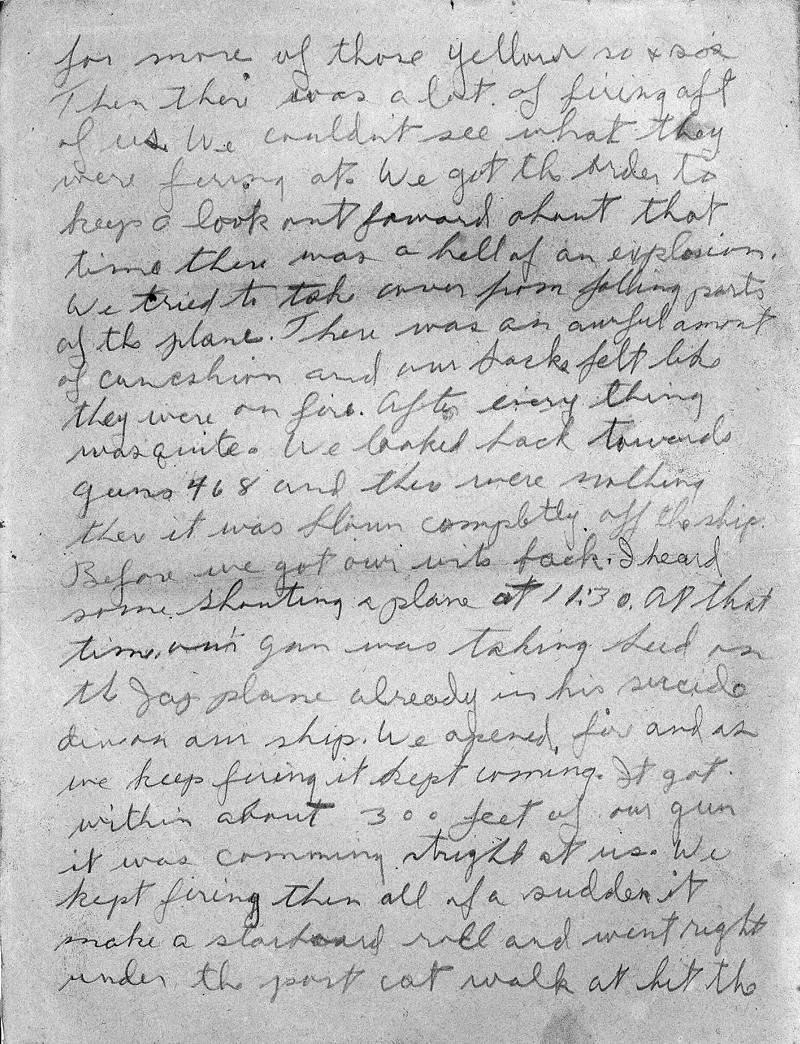 for more of those yellow so & so's
Then ther was a lot. of firing aft
of us. We couldn't see what they
were firing at. We got th order to
keep a look out foward about that
time there was a hell of an explosion.
We tried to tak cover from falling parts
of th plane. There was an awful amont
of concshion and our backs felt like
they were on fire. After every thing
was quite. We looked back towards
guns 4 6 8 and ther were nothing
ther it was blown completly off the ship.
Before we got our wits back. I heard
some shouting a plane at 11:30. At that
time, our gun was taking bead on
th Jap plane already in his suicide
dive on our ship. We opened fir and as
we keep firing it kept coming. It got
within about 300 feet of our gun
it was comming stright at us. We
kept firing then all of a sudden it
make a starboard roll and went right
under th port cat walk at hit the